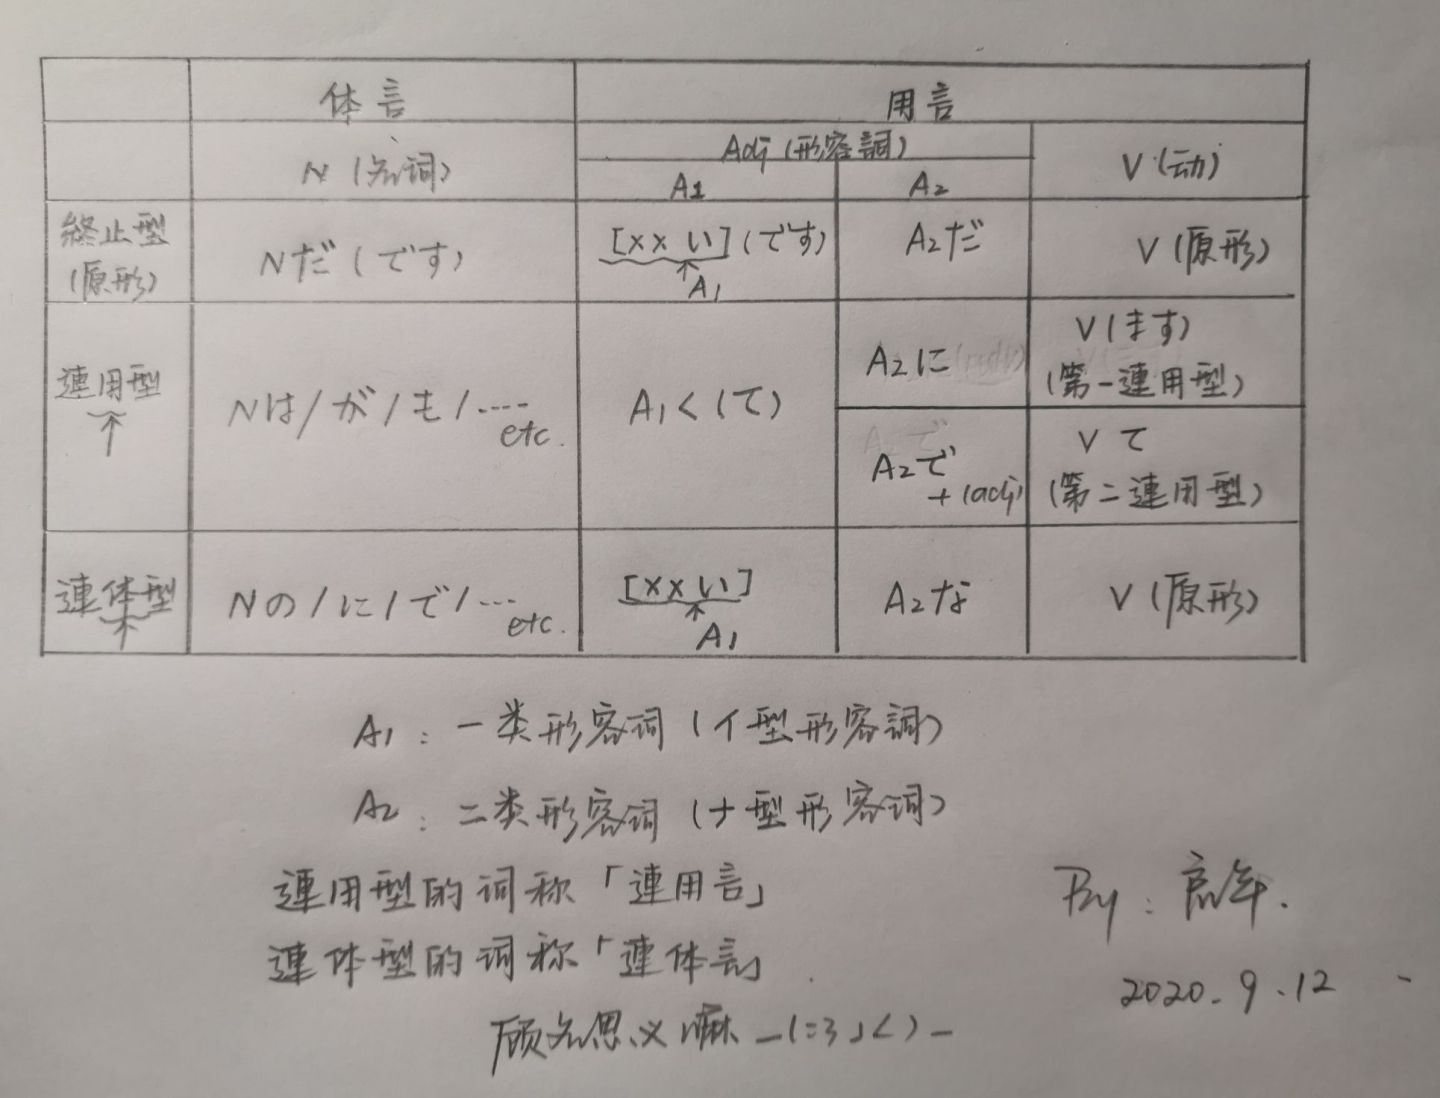 体言 用言
N(名词) Adj(形容詞) V(动)
A1 A2
終止型 Nだ(です) [××い](です) A2だ V(原形)
(原形) ↑A1
連用型 Nは/が/も/····etc. A1く(て) A2に V(ます)
↑ (第一連用型)
A2で+(adj) Vて
(第二連用型)
連体型 Nの/に/で/···etc. [××い] A2な V(原形)
↑ ↑A1
A1:一类形容词(イ型形容詞)
A2:二类形容词(ナ型形容词)
連用型的词称「連用言」
連体型的词称「連体言」
顾名思义嘛
By:
2020.9.12